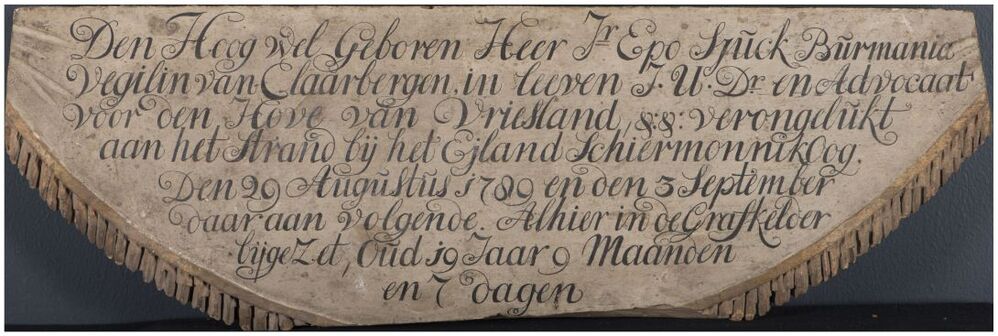 Den Hoog wel Geboren Heer Jr Epo Sjuck Burmania
Vegilin van Claarbergen, in leeven J. U. Dr. en Advocaat
voor den Hove van Vriesland, &:&: verongelukt
aan het Strand bij het Ejland Schiermonnikoog.
Den 29 Augustus 1789 en den 3 September
daar aan volgende. Alhier in de Grafkelder
bijgezet, Oud 19 Jaar 9 Maanden
en 7 dagen